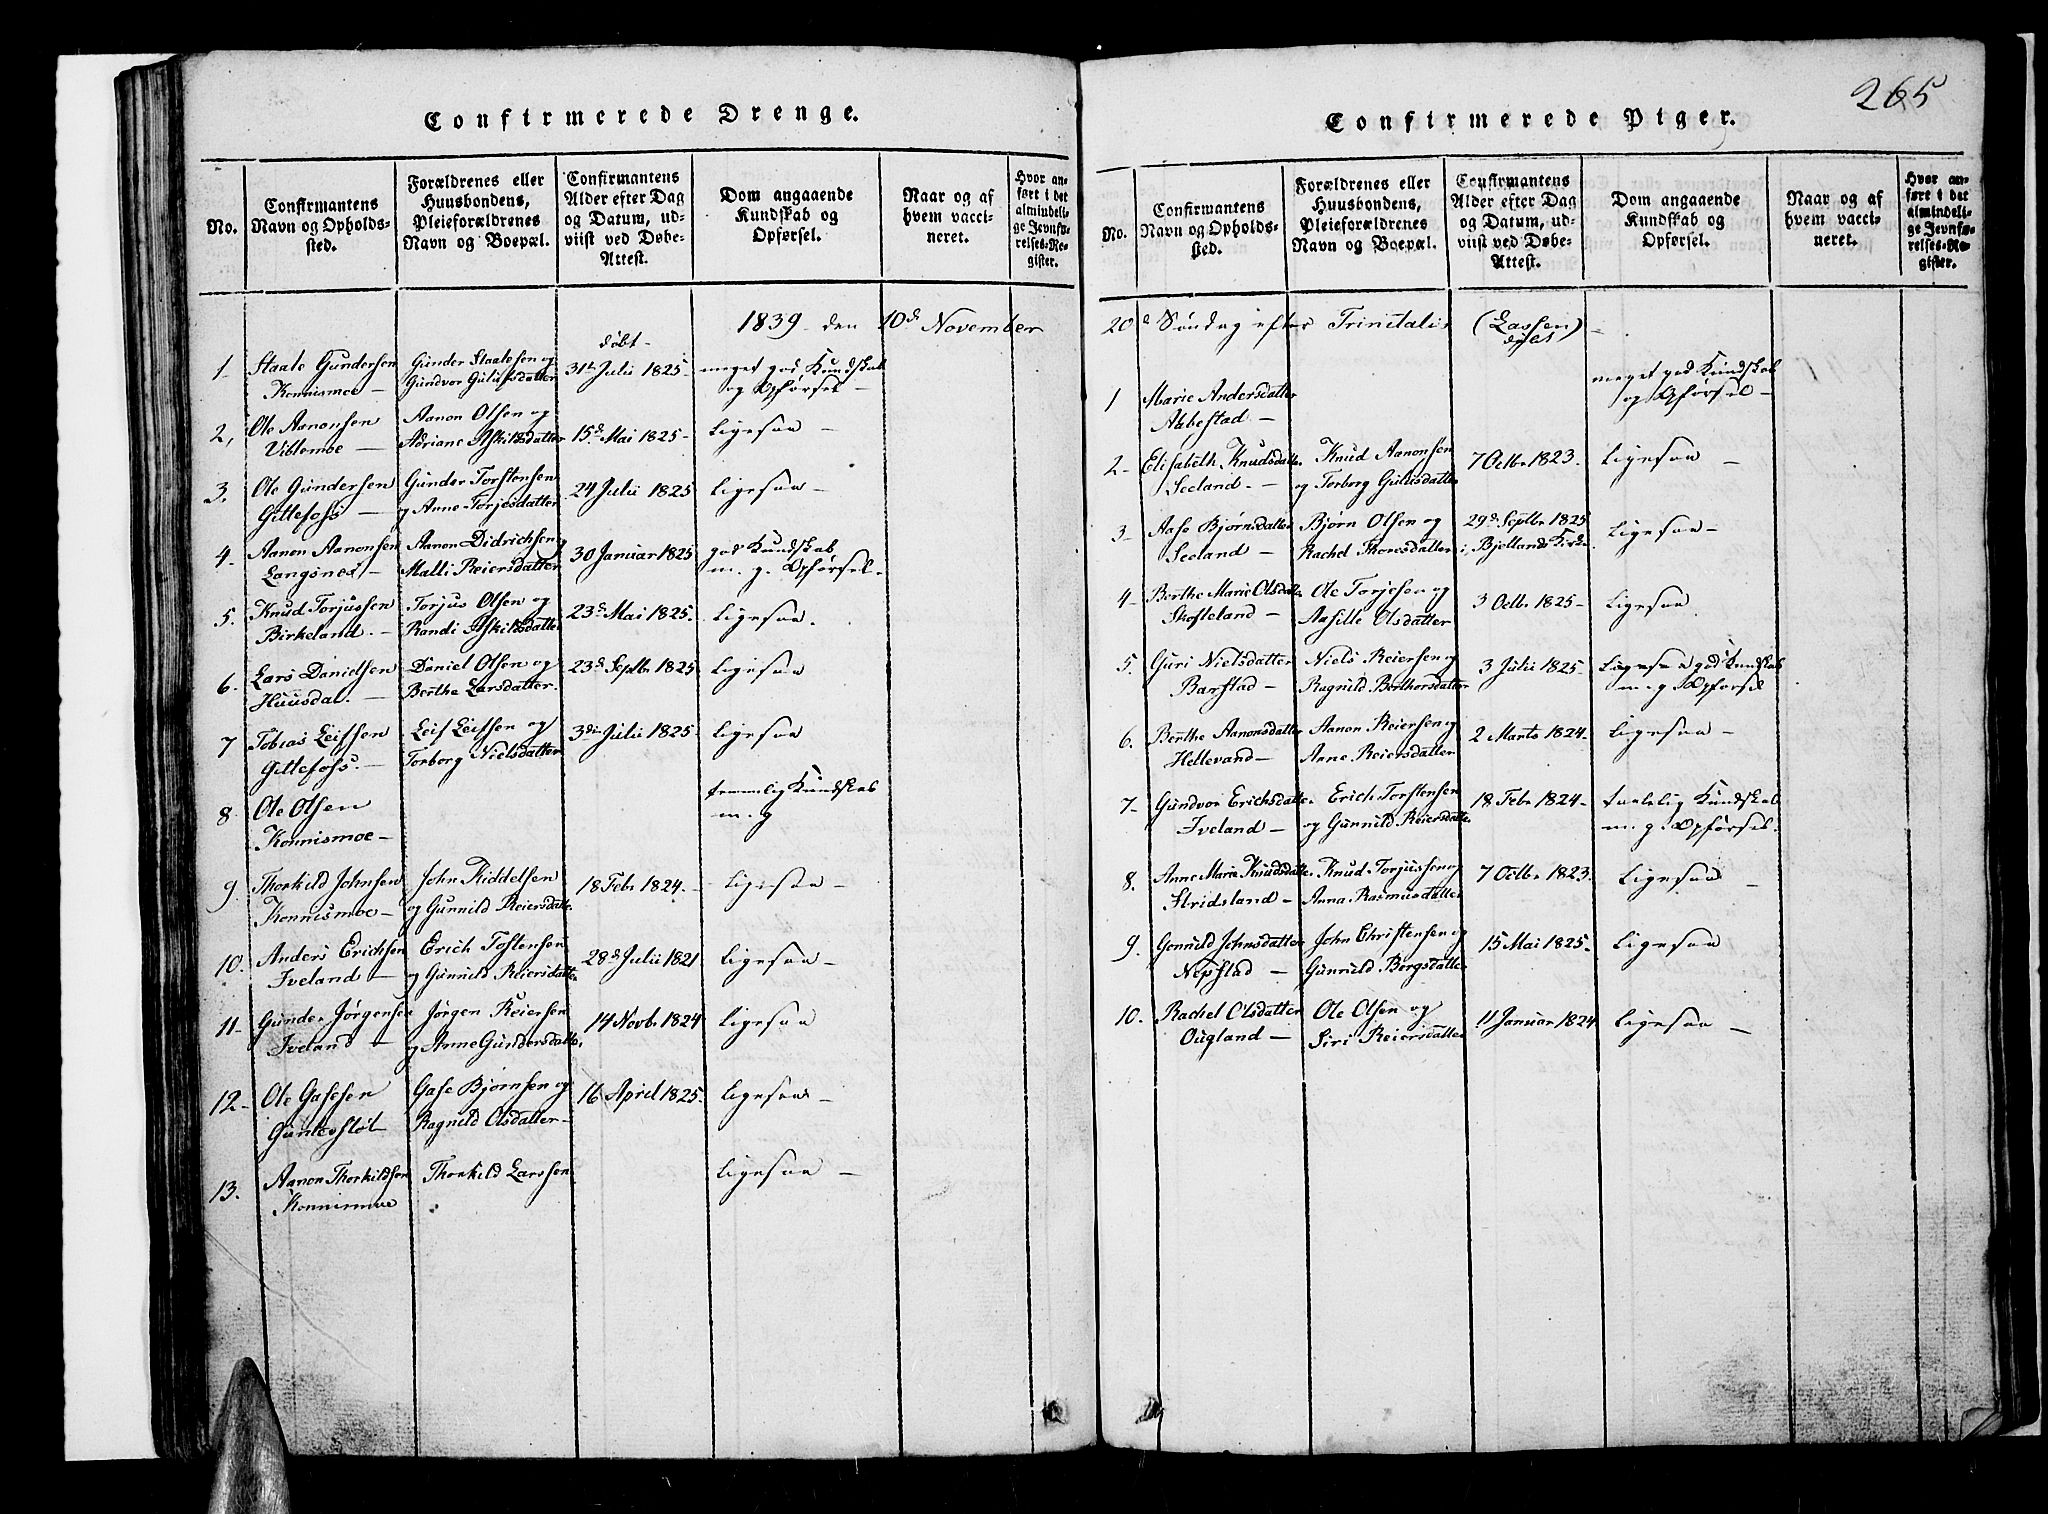 265
Confirmerede Drenge.
No.
Confirmantens Navn og Opholds-sted.
Forældrenes eller Huusbondens, Pleieforældrenes Navn og Boepæl.
Confirmantens Alder efter Dag og Datum, ud-viist ved Døbe-Attest.
Dom angaaende Kundskab og Opførsel.
Naar og af hvem vacci-neret.
Hvor an-ført i det almindeli-ge Jevnfø-relses-Re-gister.
1839 den 10de November
døbt
1 Staale Gundersen Gunder Staalesen og 31te Julii 1825 meget god Kundskab
Konnismoe Gundvor Gulufsdatter og Opførsel
2, Ole Aanonsen Aanon Olsen og 15de Mai 1825 Ligesaa
Viblemoe Adriane Askildsdatter
3. Ole Gundersen Gunder Torstensen 24 Julii 1825 Ligesaa
Gittefoss og Anne Torjesdatter
4. Aanon Aanonsen Aanon Didrichsen og 30 Januar 1825 god Kundskab
Langsnes Malli Reiersdatter m. g. Opførsel
5. Knud Torjussen Torjus Olsen og 23de Mai 1825. Ligesaa.
Birkeland. Randi Askildsdatter
6. Lars Danielsen Daniel Olsen og 23de Septbr 1825 Ligesaa
Huusdal. Berthe Larsdatter.
7 Tobias Leifsen Leif Leifsen og 3die Julii 1825 Ligesaa
Gittefoss. Torborg Nielsdatter
8. Ole Olsen temmelig Kundskab
Konnismoe m. g
9. Thorkild Johnsen John Kiddelsen 18 Febr 1824. Ligesaa
Konnismoe og Gunnild Reiersdatter
10. Anders Erichsen Erich Tostensen 28de Julii 1821 Ligesaa
Iveland og Gunnild Reiersdatter
11. Gunder Jørgensen Jørgen Reiersen 14 Novbr 1824 Ligesaa
Iveland og Anne Gundersdatter
12. Ole Gasesen Gase Bjørnsen og 16 April 1825. Ligesaa
Ragnild Olsdatter
13. Aanon Thorkildsen Thorkild Larssen Ligesaa
Konnismoe
Confirmerede Piger.
No.
Confirmantens Navn og Opholds-sted.
Forældrenes eller Huusbondens, Pleieforældrenes Navn og Boepæl.
Confirmantens Alder efter Dag og Datum, ud-viist ved Døbe-Attest.
Dom angaaende Kundskab og Opførsel.
Naar og af hvem vacci-neret.
Hvor an-ført i det almindeli-ge Jevnfø-relses-Re-gister.
20de Søndag efter Trinitatis (Lassen)
1 Marie Andersdatter meget god Kundskab
Abbestad og Opførsel
2 Elisabeth Knudsdatter Knud Aanonsen 7 Octbr 1823. Ligesaa
Seeland. og Torborg Gulusdatter
3 Aase Bjørnsdatter Bjørn Olsen og 29de Septbr 1825 Ligesaa
Seeland Rachel Thoresdatter i Bjellands Kirke
4 Berthe Marie Olsdatter Ole Torjesen og 3 Octbr 1825 Ligesaa.
Skofteland Aasille Olsdatter
5. Guri Nielsdatter Niels Reiersen og 3 Julii 1825 Ligesaa god Kundskab
Barstad Ragnild Berthorsdatter m. g. Opførsel
6. Berthe Aanonsdatter Aanon Reiersen og 2 Marts 1824 Ligesaa
Hellevand Anne Reiersdatter
7 Gundvor Erichsdatter Erich Torstensen 18 Febr 1824 taalelig Kundskab
Iveland og Gunnild Reiersdatter m. g. Opførsel.
8. Anne Marie Knudsdatter Knud Torjussen og 7 Octbr 1823. Ligesaa
Stridsland Anna Rasmusdatter
9. Gonnild Johnsdatter John Christensen og 15 Mai 1825 Ligesaa
Nepstad Gunnild Borgsdatter
10. Rachel Olsdatter Ole Olsen og 11 Januar 1824 Ligesaa
Ougland Siri Reiersdatter